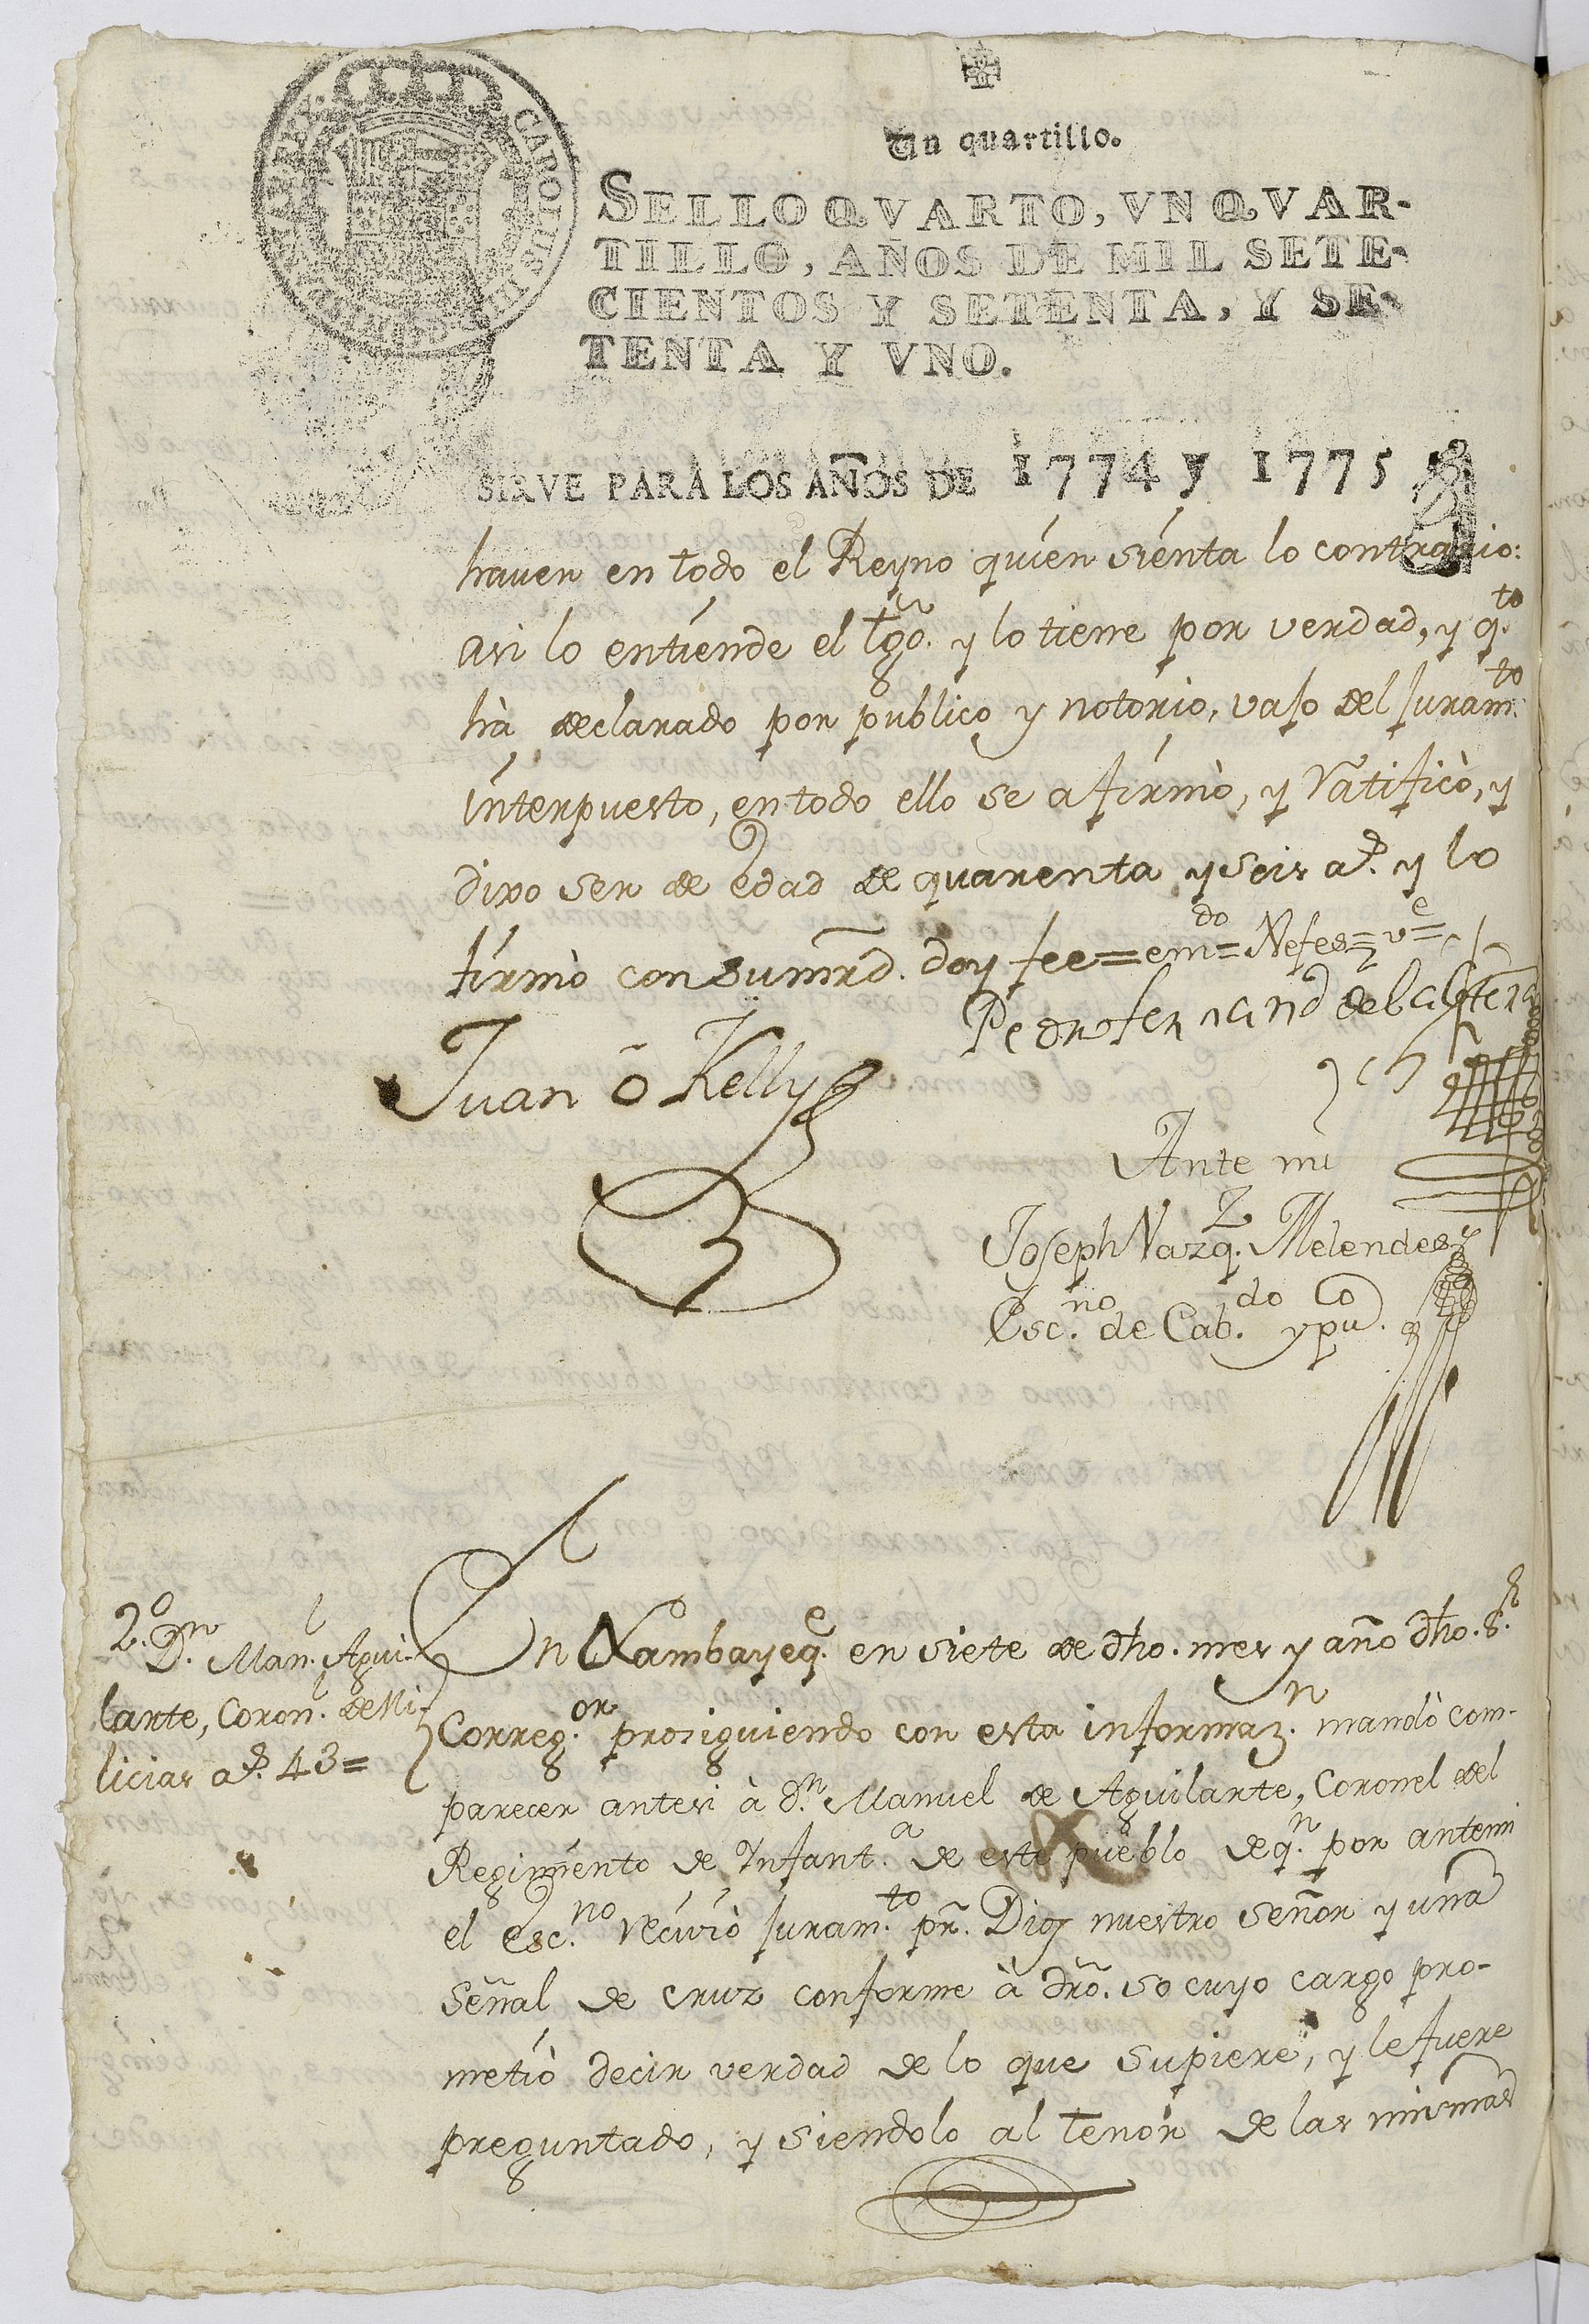 Un quartillo.
SELLO QVARTO, VN QVAR-
TILLO, AÑOS DE MIL SETE-
CIENTOS Y SETENTA, Y SE-
TENTA Y VNO.
SIRVE PARA LOS AÑOS DE 1774 y 1775
haver en todo el Reyno quien sienta lo contrario:
asi lo entiende el tgõ. y lo tiene por verdad, y q.to
hà declarado por publico y notorio, vajo del juram.to
interpuesto, en todo ello se afirmò, y ratificò, y
dixo ser de edad de quarenta y seis a.s y lo
firmò con sumrd. doy fee = em.do = Nefes = v.e =
Juan õ Kelly
Pedro Fernand de
Ante mi
Joseph Vazq.z Melendes
Esc.no de Cab.do y pu.co
2.o D.n Man.l Agui-
larte, Coron.l de Mi-
licias a.s 43 =
En Lambayeq.e en siete de dho. mes y año dho. S.r
Correg.or prosiguiendo con esta informaz.n mandò com-
parecer antesi à d.n Manuel de Aguilarte, Coronel del
Regimiento de Infant.a de este pueblo de q.n por antemi
el esc.no recivió juram.to pr. Dios nuestro señor y una
señal de cruz conforme à dro. so cuyo cargo pro-
metiò decir verdad de lo que supiere, y le fuere
preguntado, y siendolo al tenor de las mismas